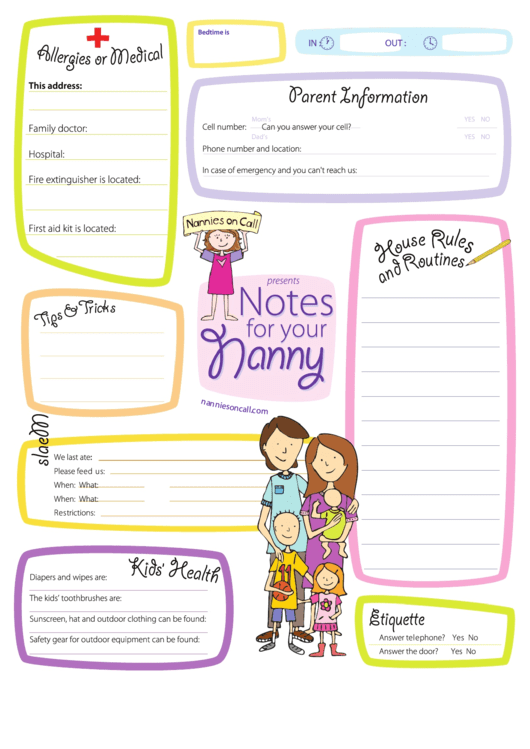 Allergies or Medical
This address:
Family doctor:
Hospital:
Fire extinguisher is located:
First aid kit is located:
Bedtime is
IN :
OUT :
Parent Information
Mom's
YES NO
Cell number: Can you answer your cell?
Dad's
YES NO
Phone number and location:
In case of emergency and you can't reach us:
Nannies on Call
presents
Notes
for your
Nanny
nanniesoncall.com
House Rules
and Routines
Tips & Tricks
Meals
We last ate:
Please feed us:
When: What:
When: What:
Restrictions:
Kids' Health
Diapers and wipes are:
The kids' toothbrushes are:
Sunscreen, hat and outdoor clothing can be found:
Safety gear for outdoor equipment can be found:
11
Etiquette
Answer telephone? Yes No
Answer the door? Yes No